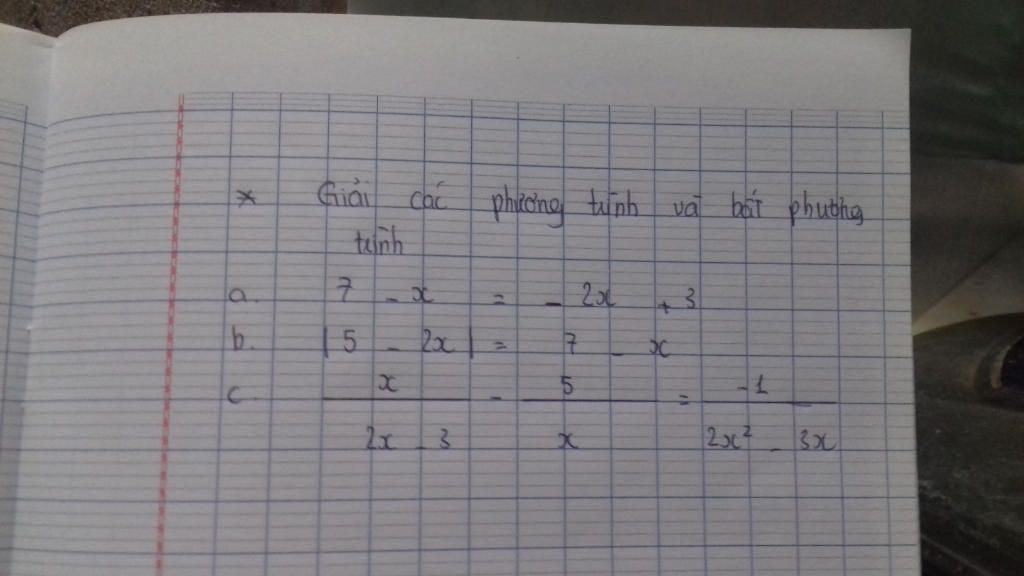 * Giải các phương trình và bất phương
trình
a. 7 - x = - 2x + 3
b. | 5 - 2x | = 7 - x
c. x/(2x - 3) - 5/x = -1/(2x² - 3x)